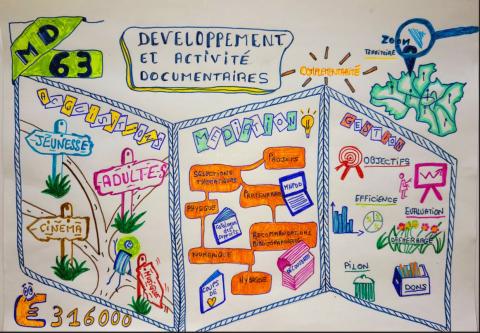 MD
63
DEVELOPPEMENT
ET ACTIVITÉ
DOCUMENTAIRES
COMPLEMENTARITÉ
ZOOM
TERRITOIRE
ACQUISITIONS
JEUNESSE
ADULTES
CINEMA
€ 316000
MEDIATION
PROJETS
SELECTIONS
THEMATIQUES
PARTENARIATS
PHYSIQUE
RECOMMANDATIONS
BIBLIOGRAPHIQUES
NUMERIQUE
HYBRIDE
COUPS DE
GESTION
OBJECTIFS
EFFICIENCE
EVALUATION
DESHERBAGE
PILON
DONS